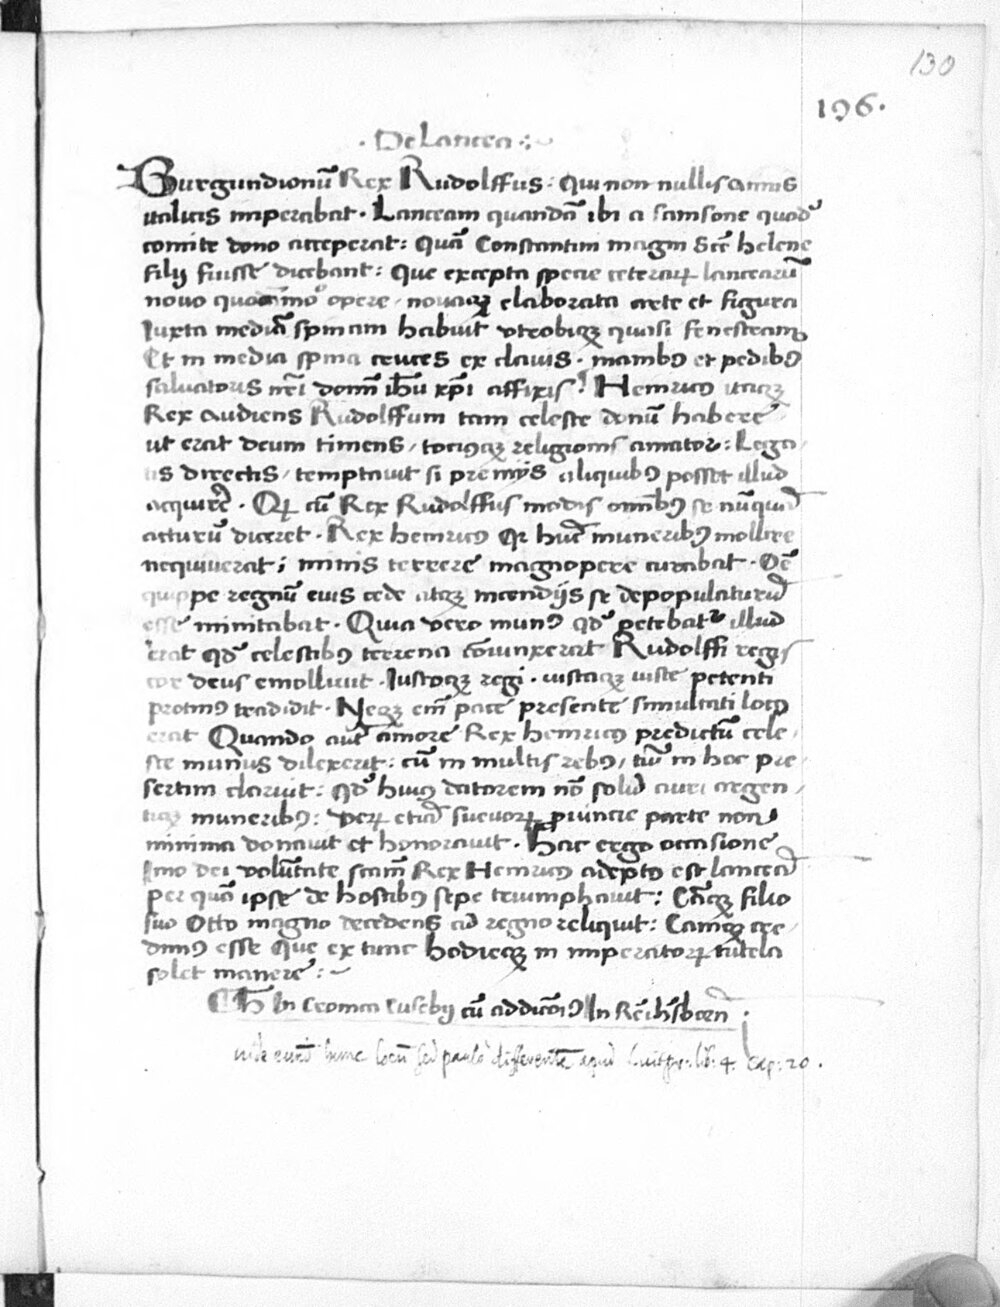 130
196.
· De Lancea ·:~
Burgundionū Rex Rudolffus : Qui non nullis annis
italicis imperabat · Lanceam quandā ibi a samsone quodā
comite dono acceperat : Quā Constantini magni Scē helene
filij fuisse dicebant : Que excepta specie ceterarꝝ lancearū
nouo quodāmo° opere / nouaqꝫ elaborata arte et figura
Iuxta mediā spinam habuit vtrobiqꝫ quasi fenestram
Et in media spina cruces ex clauis · manibꝫ et pedibꝫ
saluatoris nr̄i domī ihū xp̄i affixis : Hemricꝰ itaqꝫ
Rex audiens Rudolffum tam celeste donū habere
ut erat deum timens / tociusqꝫ religionis amator : Lega
tis directis / temptauit si premijs aliquibꝫ posset illud
acquirē · Qd cū Rex Rudolffus modis omībꝫ se nūquā
acturū diceret · Rex hemricꝰ qr hūc muneribꝫ mollire
nequiuerat ; minis terrere magnopere curabat · Oē
quippe regnū eius cede atqꝫ incendijs se depopulaturū
esse minitabat · Quia vero munꝰ qd' petebatr illud
erat qd' celestibꝫ terrena coniunxerat Rudolffi regis
cor deus emolliuit · Iustoqꝫ regi · iustaqꝫ iuste petenti
protinꝰ tradidit · Neqꝫ em̄ pace presente simultati locꝰ
erat Quando aut amore Rex hemricꝰ predictū cele
ste munus dilexerit : cū in multis rebꝫ / tūc in hoc pre
sertim claruit : qd' huiꝰ datorem nō solū auri argen
tiqꝫ muneribꝫ : verꝝ etiā sueuorꝝ ꝓuincie parte non
minima donauit et honorauit · Hac ergo occasione
Imo dei volūtate scām Rex Hemricꝰ adeptꝰ est lanceā
per quā ipse de hostibꝫ sepe triumphauit : Eāqꝫ filio
suo Otto magno decedens cū regno reliquit : Eamqꝫ cre
dimꝰ esse que ex tunc hodieqꝫ in imperatorꝝ tutela
solet manere :~
In cronica eusebij cū addicōiꝫ In
vide eund hunc locū sed paulo differentē apud Luitpr. lib. 4. cap. 20.